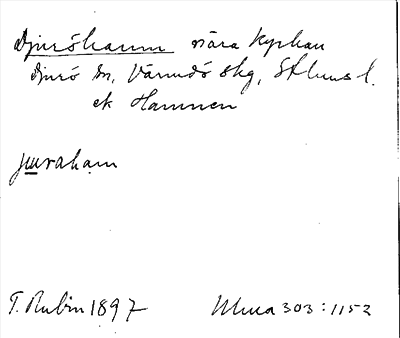 Djuröhamn nära kyrkan
Djurö sn, Värmdö skg, Sthlms l.
ek Hamnen
juraham
T. Rubin 1897 Uhua 303:1152